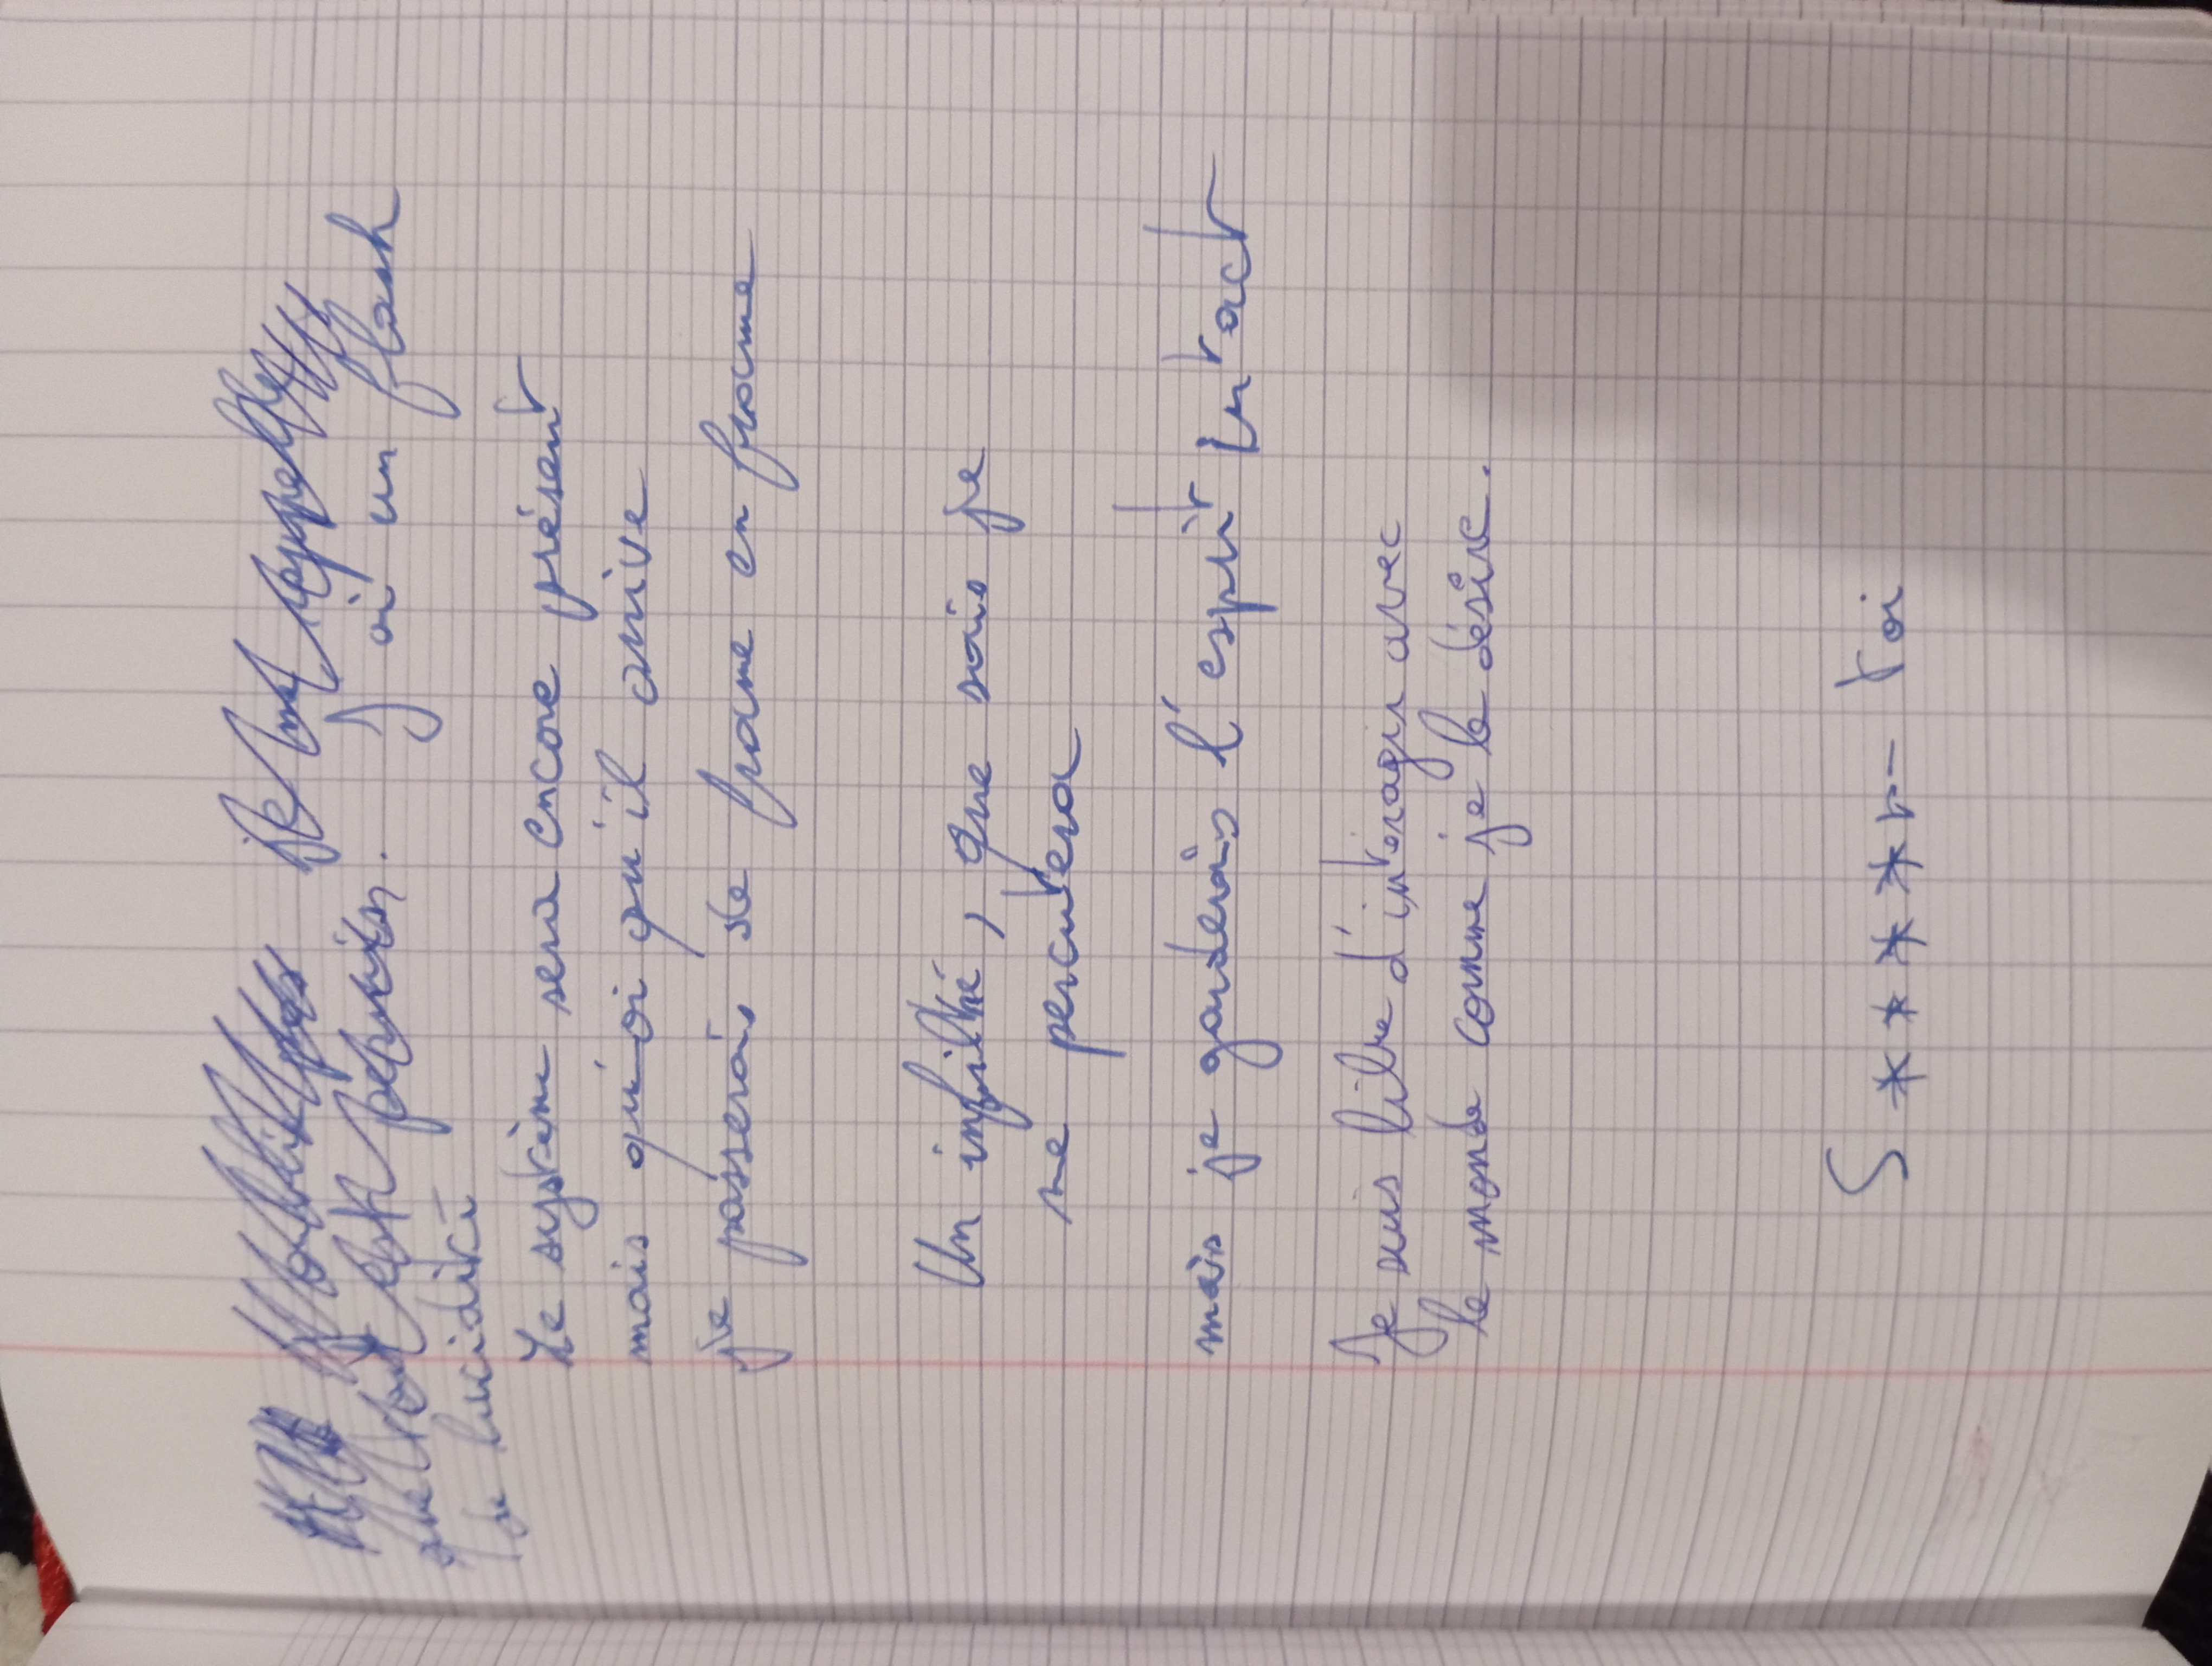 j'oublie pas je me rappelle
que tout est permis. J'ai un flash
de lucidité
Le système sera encore présent
mais qu'oi qu'il arrive
je passerais de frame en frame
Un infiltré, que sais je
me percutera
mais je garderais l'esprit intact
Je suis libre d'interagir avec
le monde comme je le désire.
S****r- toi